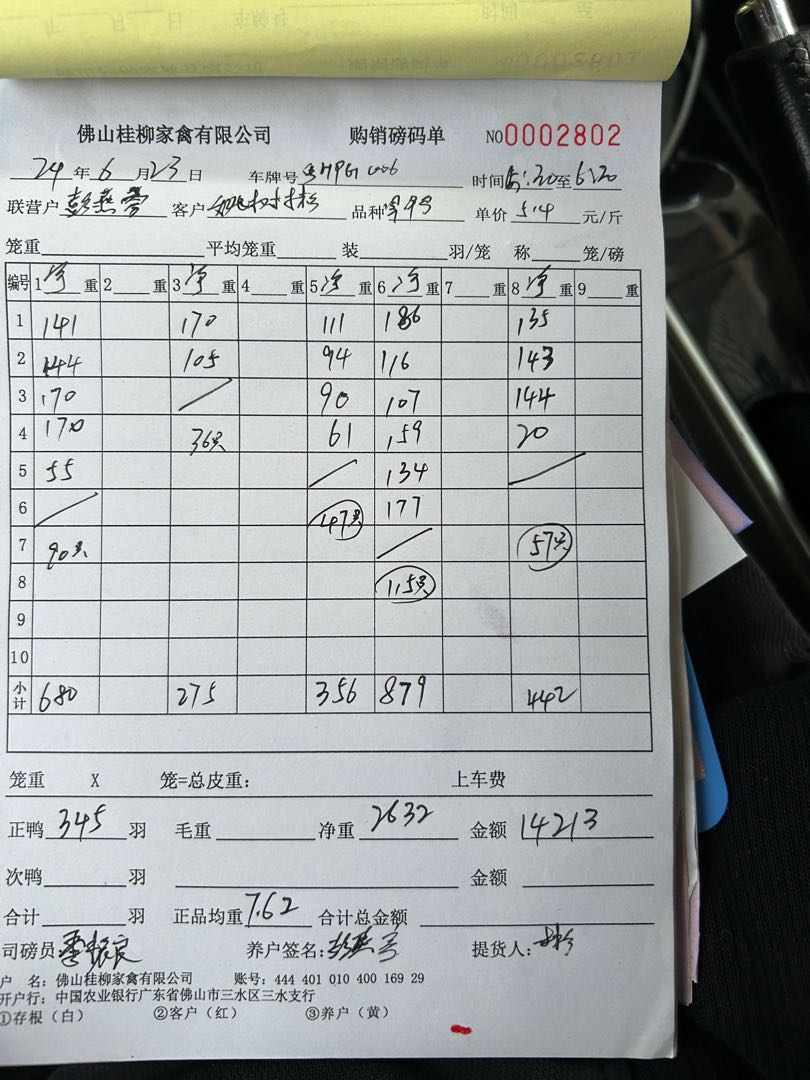 佛山桂柳家禽有限公司 购销磅码单 NO0002802
24年6月23日 车牌号 时间 至6:20
联营户 彭燕 客户 品种 单价 5.4 元/斤
笼重 平均笼重 装 羽/笼 称 笼/磅
编号 1 净 重 2 重 3 净 重 4 重 5 净 重 6 净 重 7 重 8 净 重 9 重
1 141 170 111 186 135
2 144 105 94 116 143
3 170 / 90 107 144
4 170 36只 61 159 20
5 55 / 134 /
6 / 47只 177
7 90只 / 57只
8 115只
9
10
小计 680 275 356 879 442
笼重 X 笼=总皮重: 上车费
正鸭 345 羽 毛重 净重 2632 金额 14213
次鸭 羽 金额
合计 羽 正品均重 7.62 合计总金额
司磅员 养户签名: 彭燕 提货人:
户 名: 佛山桂柳家禽有限公司 账号: 444 401 010 400 169 29
开户行: 中国农业银行广东省佛山市三水区三水支行
①存根(白) ②客户(红) ③养户(黄)